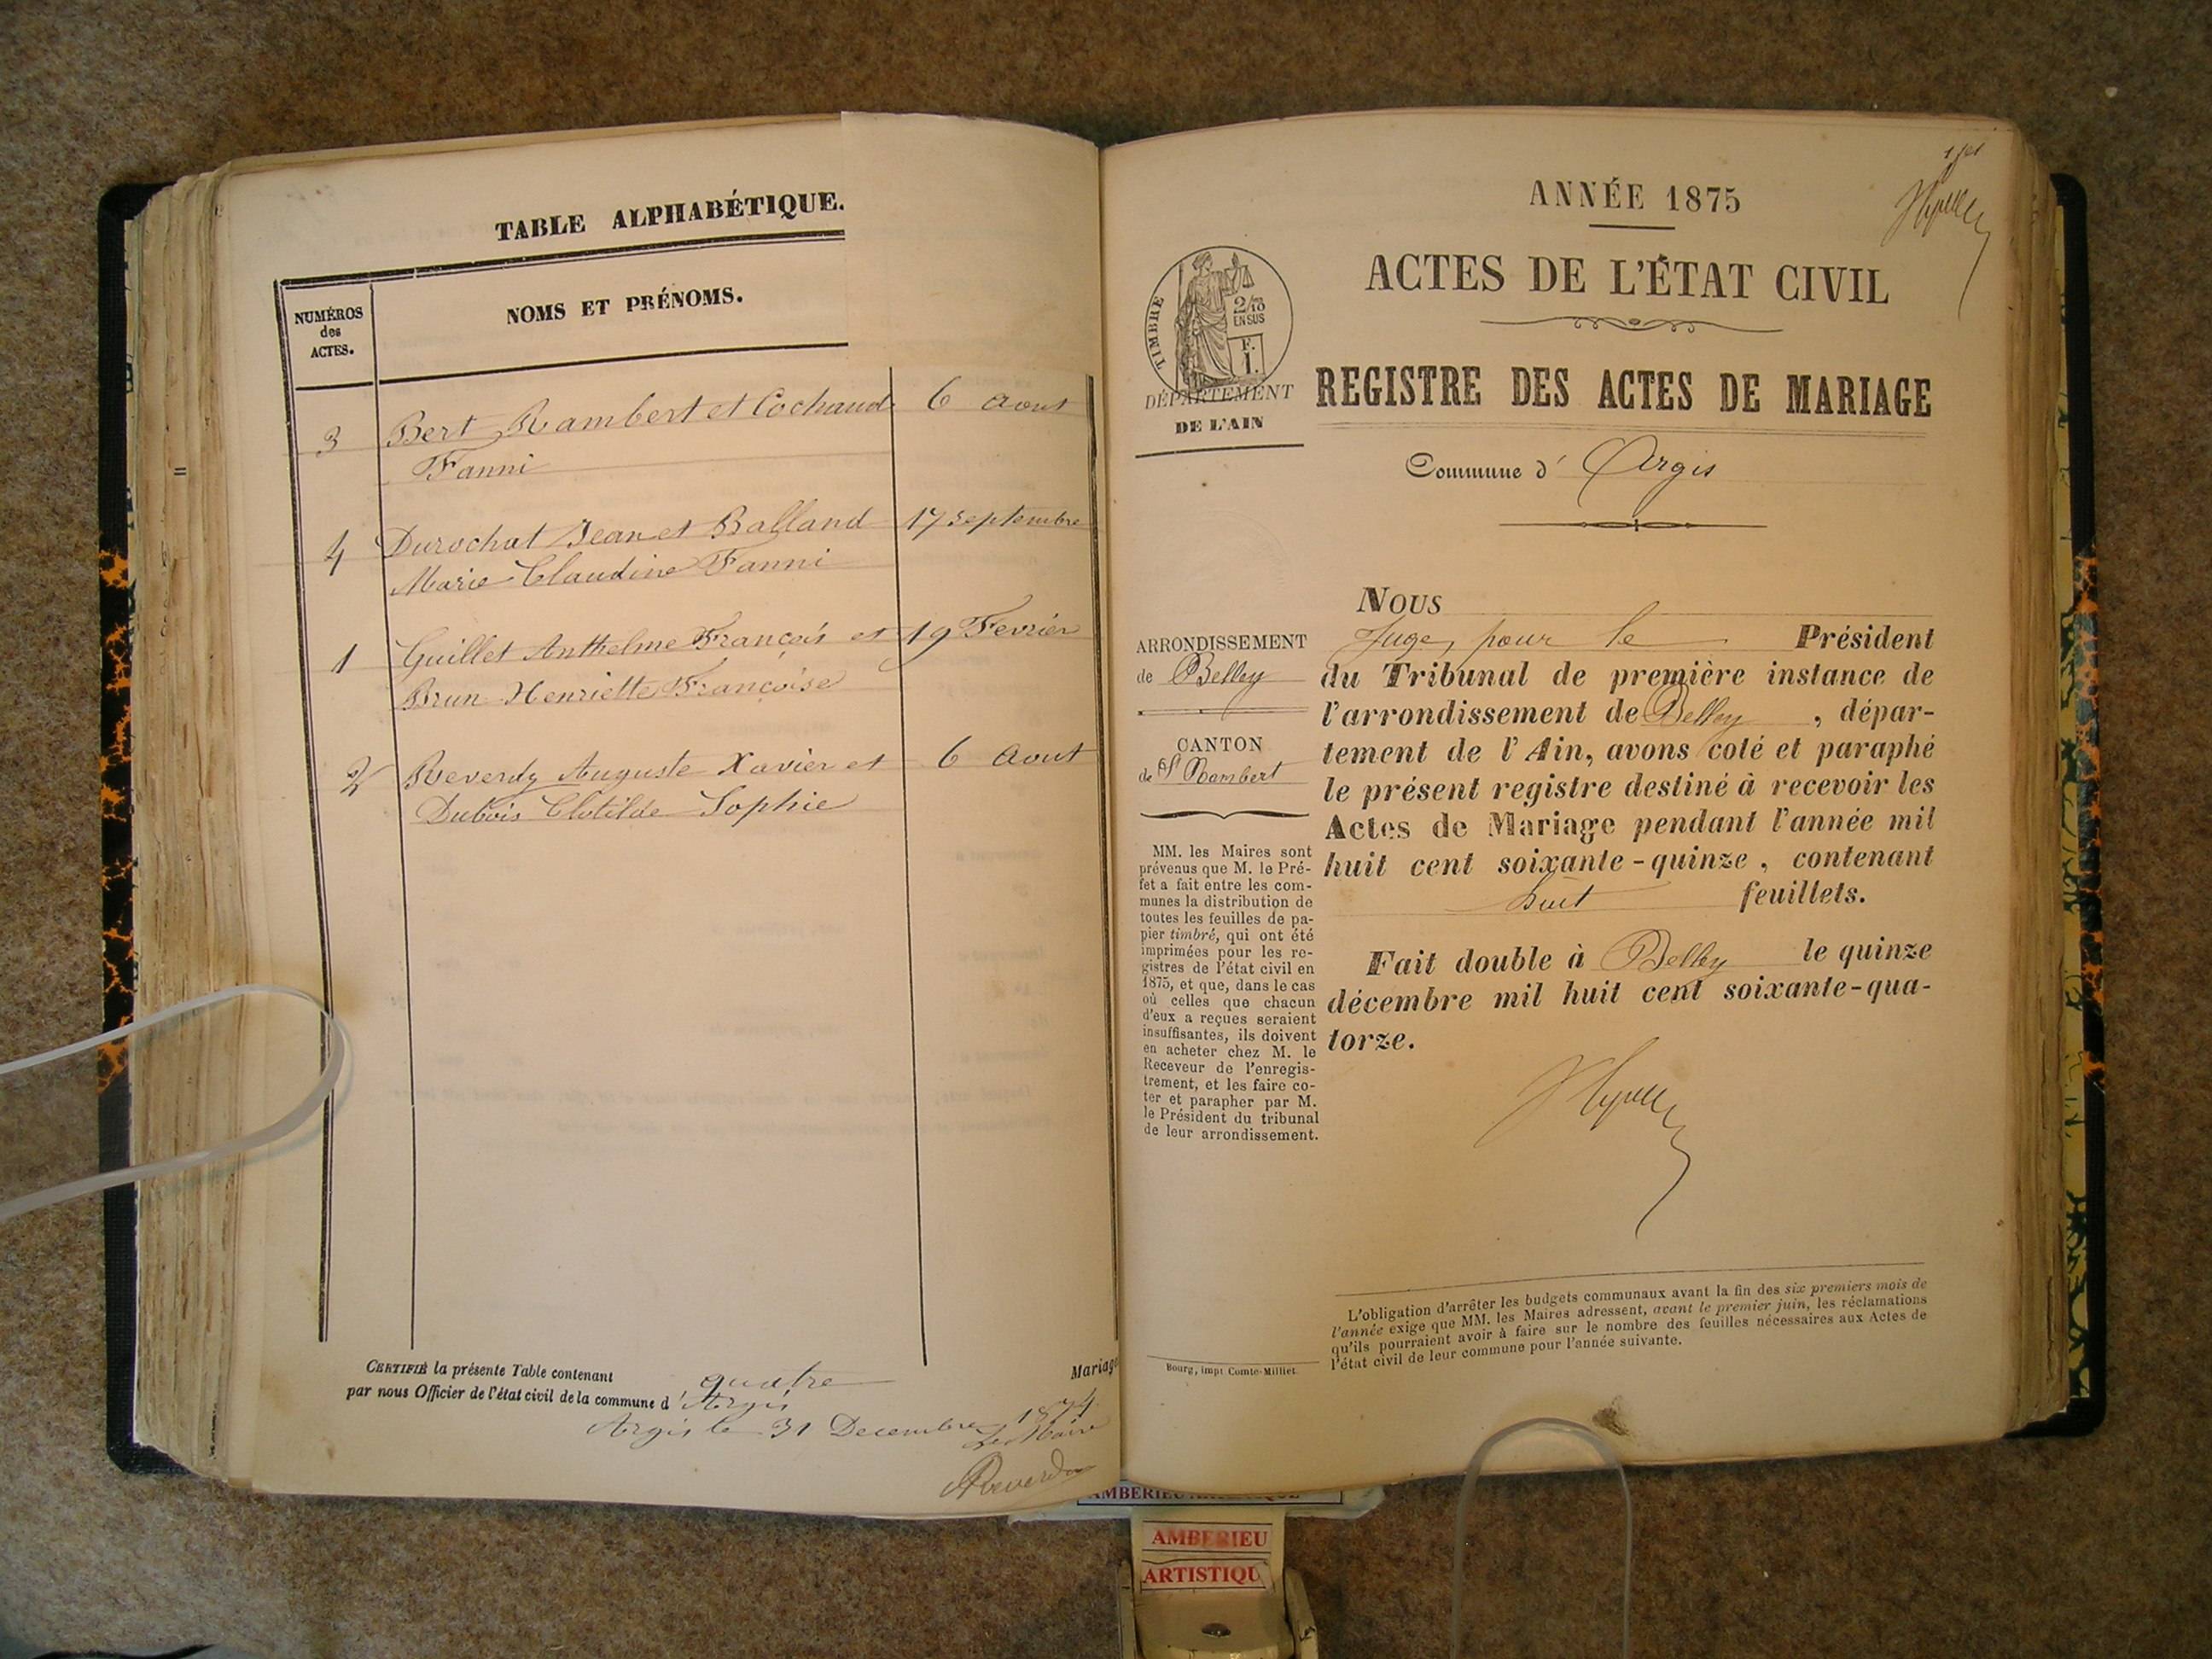 TABLE ALPHABÉTIQUE.
NUMÉROS
des
ACTES.
NOMS ET PRÉNOMS.
3 Bert Rambert et Cochaud 6 Aout
Fanni
4 Durochat Jean et Balland 17 Septembre
Marie Claudine Fanni
1 Guillet Anthelme François et 19 Fevrier
Brun Henriette Françoise
2 Reverdy Auguste Xavier et 6 Aout
Dubois Clotilde Sophie
CERTIFIÉ la présente Table contenant quatre Mariage
par nous Officier de l'état civil de la commune d'Argis
Argis le 31 Decembre 1874
Le Maire
Reverdy
ANNÉE 1875
ACTES DE L'ÉTAT CIVIL
TIMBRE
2/10
EN SUS
F.
1.
DÉPARTEMENT
DE L'AIN
REGISTRE DES ACTES DE MARIAGE
Commune d' Argis
ARRONDISSEMENT
de Belley
CANTON
de St Rambert
MM. les Maires sont
prévenus que M. le Pré-
fet a fait entre les com-
munes la distribution de
toutes les feuilles de pa-
pier timbré, qui ont été
imprimées pour les re-
gistres de l'état civil en
1875, et que, dans le cas
où celles que chacun
d'eux a reçues seraient
insuffisantes, ils doivent
en acheter chez M. le
Receveur de l'enregis-
trement, et les faire co-
ter et parapher par M.
le Président du tribunal
de leur arrondissement.
Nous
Juge, pour le Président
du Tribunal de première instance de
l'arrondissement de Belley, dépar-
tement de l'Ain, avons coté et paraphé
le présent registre destiné à recevoir les
Actes de Mariage pendant l'année mil
huit cent soixante-quinze, contenant
huit feuillets.
Fait double à Belley le quinze
décembre mil huit cent soixante-qua-
torze.
L'obligation d'arrêter les budgets communaux avant la fin des six premiers mois de
l'année exige que MM. les Maires adressent, avant le premier juin, les réclamations
qu'ils pourraient avoir à faire sur le nombre des feuilles nécessaires aux Actes de
l'état civil de leur commune pour l'année suivante.
Bourg, impr Comte-Milliet.
AMBERIEU
ARTISTIQU